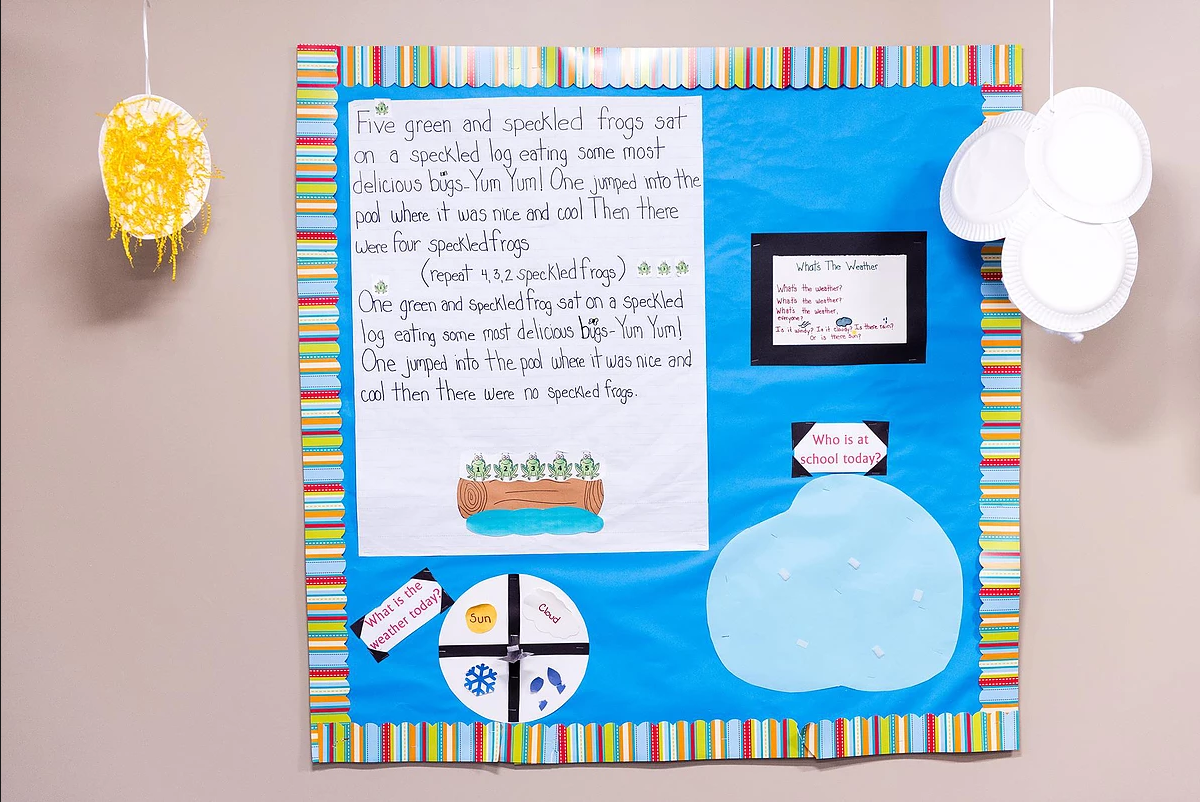 Five green and speckled frogs sat
on a speckled log eating some most
delicious bugs-Yum Yum! One jumped into the
pool where it was nice and cool Then there
were four speckled frogs
(repeat 4,3,2 speckled frogs)
One green and speckled frog sat on a speckled
log eating some most delicious bugs-Yum Yum!
One jumped into the pool where it was nice and
cool then there were no speckled frogs.
1 2 3 4 5
What's The Weather
What's the weather?
What's the weather?
What's the weather,
everyone?
Is it windy? Is it cloudy? Is there rain?
Or is there sun?
Who is at
school today?
What is the
weather today?
Sun
Cloud